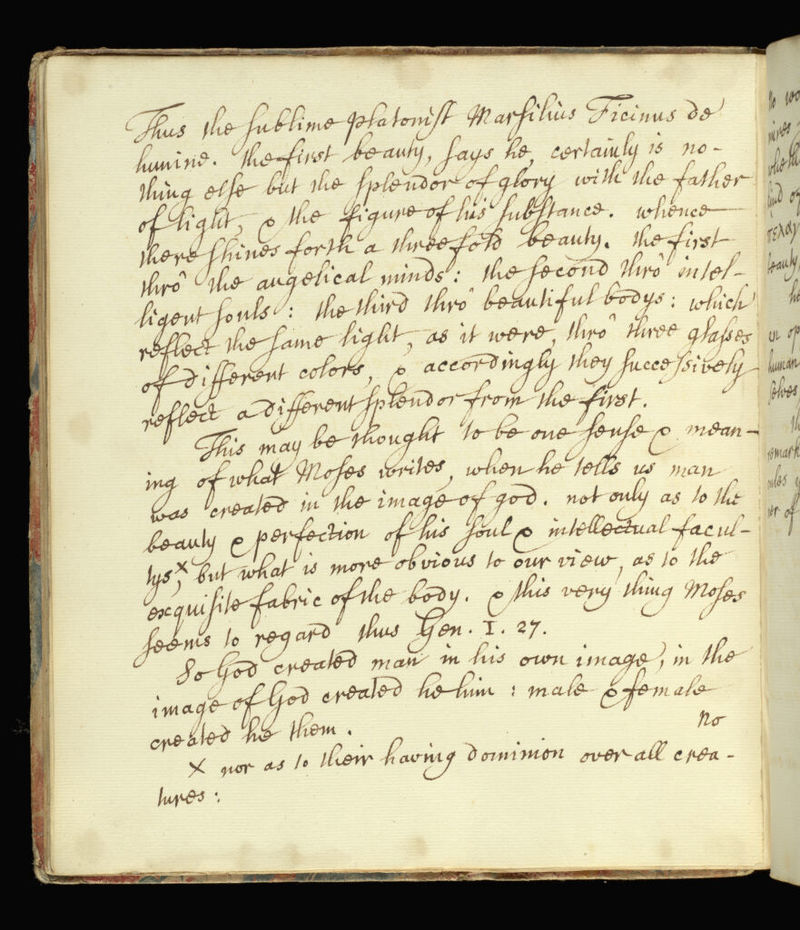 Thus the sublime platonist Marsilius Ficinus de
lumine. the first beauty, says he, certainly is no-
thing else but the splendor of glory with the father
of light, & the figure of his substance. whence
there shines forth a threefold beauty. the first
thro' the angelical minds: the second thro' intel-
ligent souls: the third thro' beautiful bodys: which
reflect the same light, as it were, thro' three glasses
of different colors, & accordingly they successively
reflect a different splendor from the first.
This may be thought to be one sense & mean-
ing of what Moses writes, when he tells us man
was created in the image of god. not only as to the
beauty & perfection of his soul & intellectual facul-
tys,x but what is more obvious to our view, as to the
exquisite fabric of the body. & this very thing Moses
seems to regard thus Gen. I. 27.
So God created man in his own image, in the
image of God created he him: male & female
created he them.
No
x nor as to their having dominion over all crea-
tures: